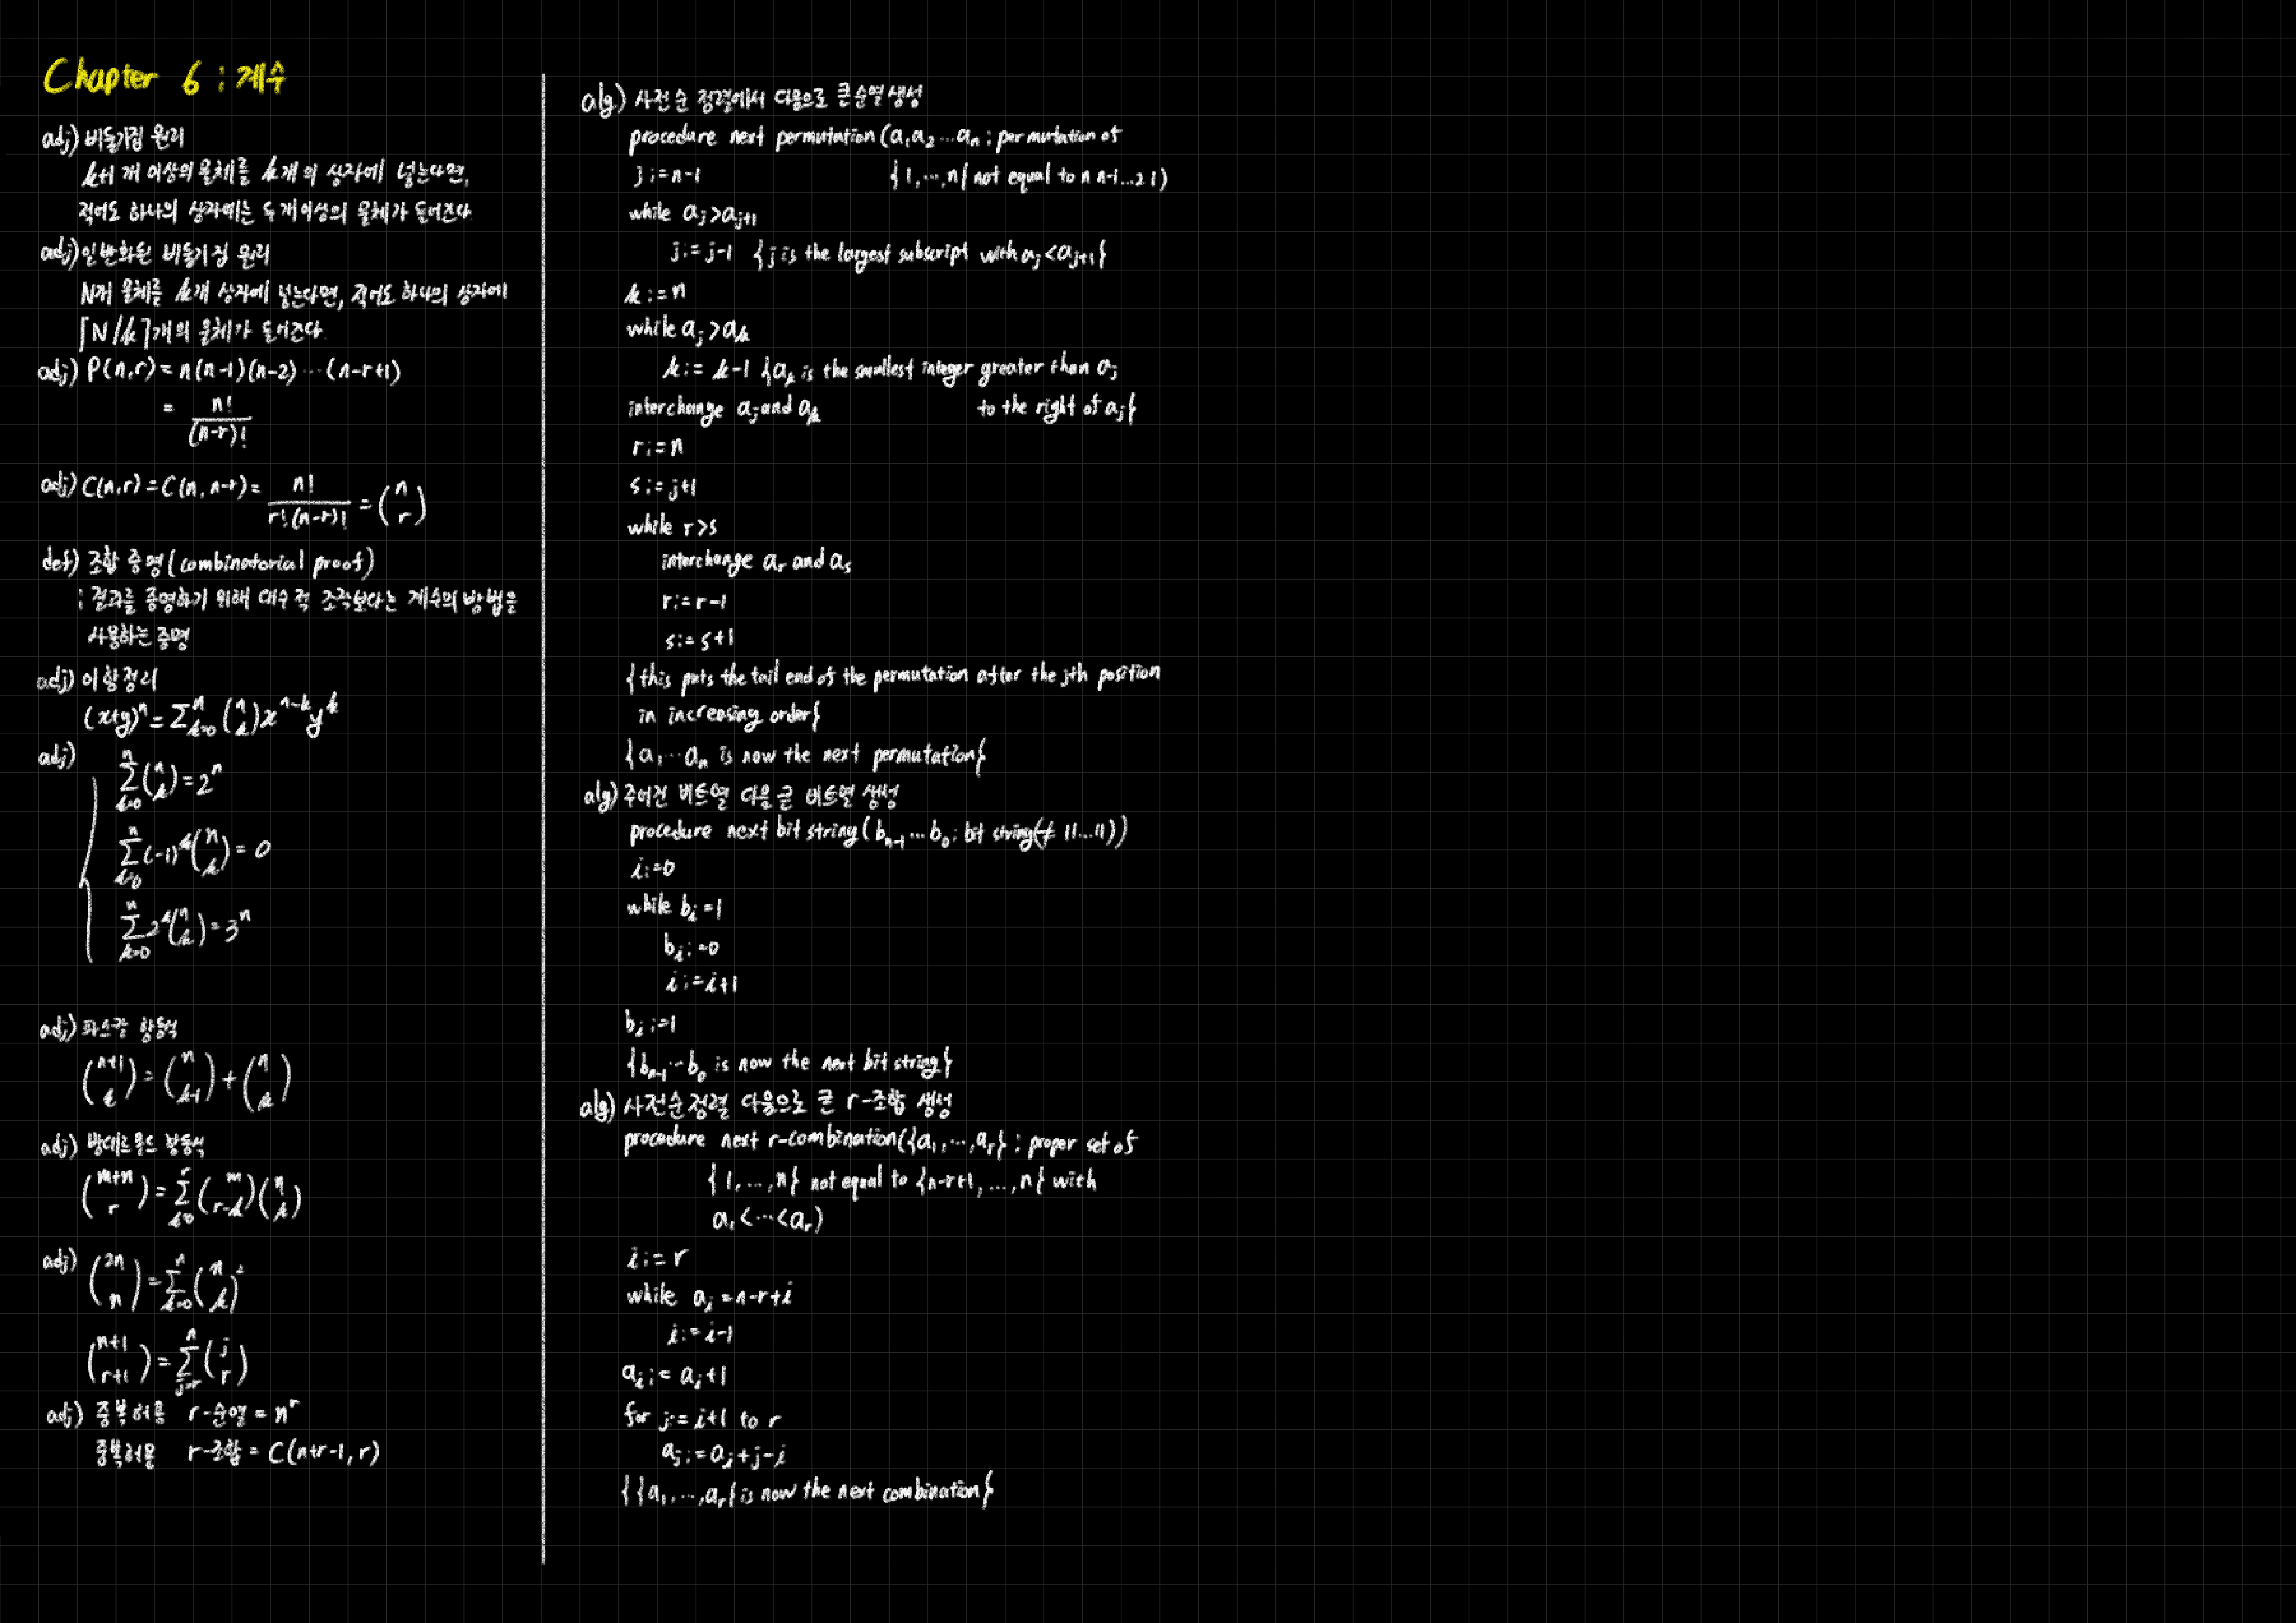 Chapter 6 ; 계수
adj) 비둘기집 원리
k+1 개 이상의 물체를 k개의 상자에 넣는다면,
적어도 하나의 상자에는 두 개 이상의 물체가 들어간다
adj) 일반화된 비둘기집 원리
N개 물체를 k개 상자에 넣는다면, 적어도 하나의 상자에
⌈N/k⌉개의 물체가 들어간다.
adj) P(n,r) = n(n-1)(n-2) ⋯ (n-r+1)
= n! / (n-r)!
adj) C(n,r) = C(n, n-r) = n! / r!(n-r)! = (n r)
def) 조합 증명 (combinatorial proof)
; 결과를 증명하기 위해 대수적 조작보다는 계수의 방법을
사용하는 증명
adj) 이항정리
(x+y)^n = Σ_{k=0}^n (n k) x^{n-k} y^k
adj)
Σ_{k=0}^n (n k) = 2^n
Σ_{k=0}^n (-1)^k (n k) = 0
Σ_{k=0}^n 2^k (n k) = 3^n
adj) 파스칼 항등식
(n+1 k) = (n k-1) + (n k)
adj) 방데르몽드 항등식
(m+n r) = Σ_{k=0}^r (m r-k) (n k)
adj) (2n n) = Σ_{k=0}^n (n k)^2
(n+1 r+1) = Σ_{j=r}^n (j r)
adj) 중복허용 r-순열 = n^r
중복허용 r-조합 = C(n+r-1, r)
alg) 사전순 정렬에서 다음으로 큰 순열 생성
procedure next permutation (a₁a₂…aₙ ; permutation of
j := n-1 {1,…,n} not equal to n n-1…2 1)
while a_j > a_{j+1}
j := j-1 {j is the largest subscript with a_j < a_{j+1}}
k := n
while a_j > a_k
k := k-1 {a_k is the smallest integer greater than a_j
interchange a_j and a_k to the right of a_j}
r := n
s := j+1
while r > s
interchange a_r and a_s
r := r-1
s := s+1
{this puts the tail end of the permutation after the jth position
in increasing order}
{a₁…aₙ is now the next permutation}
alg) 주어진 비트열 다음 큰 비트열 생성
procedure next bit string (b_{n-1}…b₀ : bit string(≠ 11…11))
i := 0
while b_i = 1
b_i := 0
i := i+1
b_i := 1
{b_{n-1}…b₀ is now the next bit string}
alg) 사전순 정렬 다음으로 큰 r-조합 생성
procedure next r-combination({a₁,…,a_r} ; proper set of
{1,…,n} not equal to {n-r+1,…,n} with
a₁<…<a_r)
i := r
while a_i = n-r+i
i := i-1
a_i := a_i+1
for j := i+1 to r
a_j := a_i+j-i
{{a₁,…,a_r} is now the next combination}